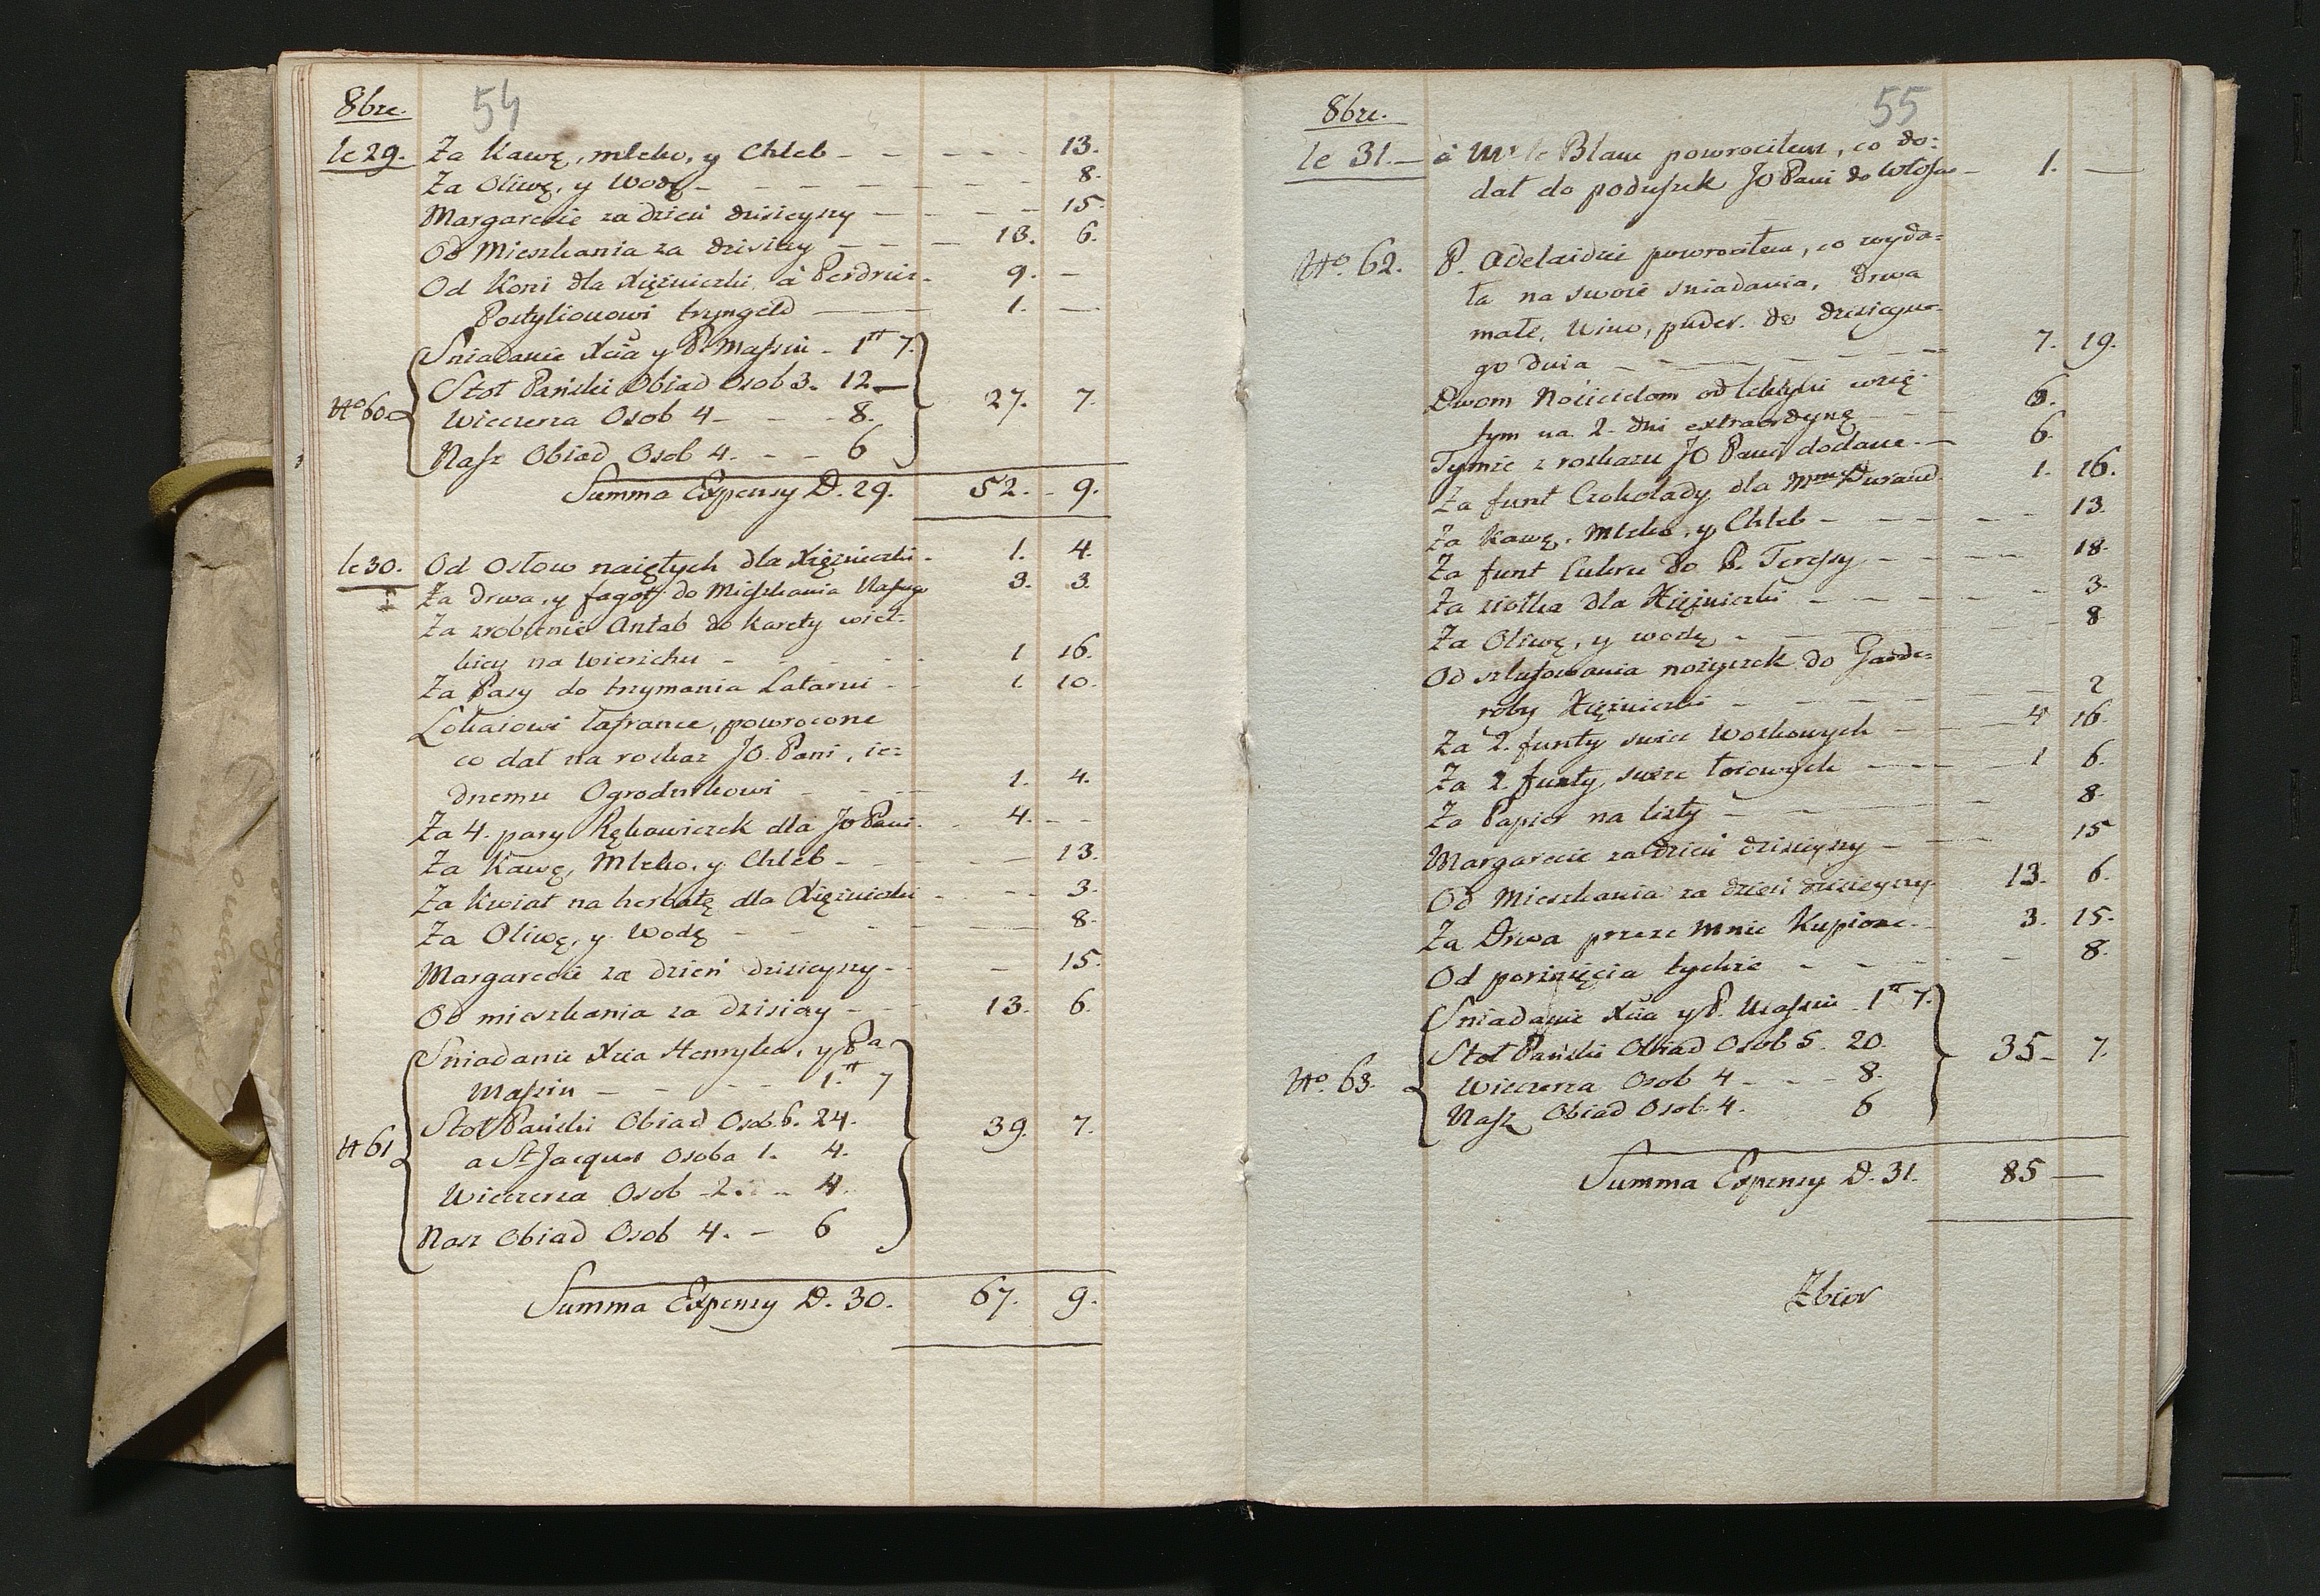 8bre. 54
le 29. Za Kawę, mleko, y Chleb - - - - 13.
Za Oliwę, y Wodę - - - - - - - 8.
Margarecie za dzien dzisieyszy - - - - 15.
Od Mieszkania za dzisiay - - - 13. 6.
Od Koni dla Xiężniczki, à Perdrier - 9. -
Postylionowi tryngeld - - - 1. -
Sniadanie Xcia y P. Massin - 1tt 7.
Stoł Pański Obiad Osob 3. 12 -
No 60. Wieczerza Osob 4 - - - 8. 27. 7.
Nasz Obiad Osob 4. - - 6
Summa Expensy D. 29. 52. - 9.
le 30. Od Osłow naiętych dla Xiężniczki - 1. 4.
Za drwa, y fagoty do Mieszkania Naszego 3. 3.
Za zrobienie Antab do Karety wiel:
kiey na Wierzchu - - - - 1 16.
Za Pasy do trzymania Latarni - - 1. 10.
Lokaiowi Lafrance, powrocone
co dał na roskaz JO. Pani, ie:
dnemu Ogrodnikowi - - - 1. 4.
Za 4. pary Rękawiczek dla JO Pani - 4. - -
Za Kawę, Mleko, y Chleb - - - - 13.
Za Kwiat na herbatę dla Xiężniczki - - - 3.
Za Oliwę, y Wodę - - - - - 8.
Margarecie za dzień dzisieyszy - - - 15.
Od mieszkania za dzisiay - - 13. 6.
Sniadanie Xcia Henryka, y Pa
Massin - - - - 1.tt 7
Stoł Pański Obiad Osob. 6. 24.
N 61 39. 7.
a St Jacques Osoba 1. 4.
Wieczerza Osob - 2. - 4.
Nasz Obiad Osob 4. - 6
Summa Expensy D. 30. 67. 9.
8bre. 55
le 31. - à Mr le Blanc powrociłem, co do:
dał do poduszek JO Pani do Włosow - 1. -
No. 62. P. Adelaidzie powrociłem, co wyda:
ła na swoie sniadania, Drwa
małe, Wino, puder. do dzisieysze:
go dnia - - - - - 7. 19.
Dwom Nosicielom od lektyki wzię:
tym na 2. dni extraordynę - - - 6.
Tymże z roskazu JO Pani dodane - 6.
Za funt Czokolady dla Mme Durand. 1. 16.
Za Kawę, Mleko, y Chleb - - - - - 13.
Za funt Cukru do P. Teressy - - - - 18.
Za ziołka dla Xiężniczki - - - - - 3.
Za Oliwę, y wodę - - - - 8
Od szlufowania nożyczek do Garde:
roby Xiężniczki - - - - 2
Za 2. funty swiec Woskowych - - 4 16.
Za 2 funty swiec łoiowych - - - 1 6.
Za Papier na listy - - - - 8.
Margarecie za dzień dzisieyszy - - - 15
Od Mieszkania za dzień dzisieyszy - 13. 6.
Za Drwa przeze mnie Kupione - 3. 15.
Od porznięcia tychże - - - - - 8.
Sniadanie Xcia y P. Massin - 1tt 7.
Stoł Pański Obiad Osob 5. 20. 35 - 7.
No. 63. Wieczerza Osob 4 - - - 8.
Nasz Obiad Osob. 4. 6
Summa Expensy D. 31. 85 -
Zbior